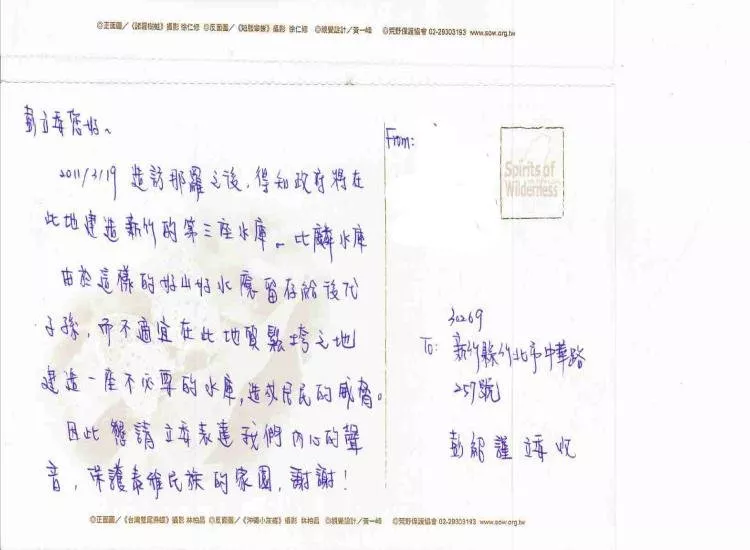 ◎正面圖／《諸羅樹蛙》攝影 徐仁修 ◎反面圖／《短腹幽蟌》攝影 徐仁修 ◎視覺設計／黃一峰 ◎荒野保護協會 02-29303193 www.sow.org.tw
彭立委您好、
2011/3/19 造訪那羅之後，得知政府將在
此地建造新竹的第三座水庫。比麟水庫
由於這樣的好山好水應留存給後代
子孫，而不適宜在此地質鬆垮之地
建造一座不必要的水庫，造成居民的威脅。
因此懇請立委表達我們內心的聲
音，保護泰雅民族的家園，謝謝！
From:
Spirits of
Wilderness
30269
To: 新竹縣竹北市中華路
257號
彭紹謹 立委收
◎正面圖／《台灣雙尾燕蝶》攝影 林柏昌 ◎反面圖／《沖繩小灰蝶》攝影 林柏昌 ◎視覺設計／黃一峰 ◎荒野保護協會 02-29303193 www.sow.org.tw